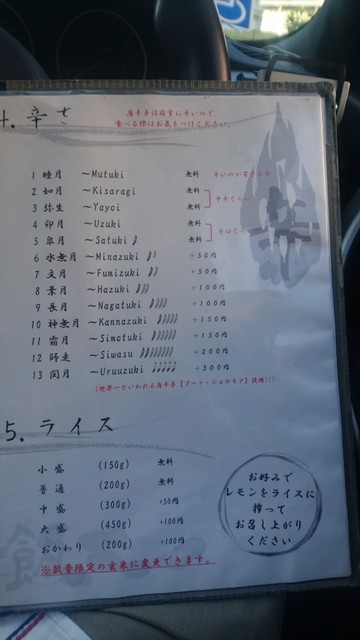 4. 辛さ
唐辛子は非常に辛いので、
食べる際はお気をつけください。
1 睦月 ～Mutuki 無料 辛いのが苦手な方
2 如月 ～Kisaragi 無料
3 弥生 ～Yayoi 無料
4 卯月 ～Uzuki 無料
5 皐月 ～Satuki 無料
6 水無月 ～Minazuki +50円
7 文月 ～Fumizuki +50円
8 葉月 ～Hazuki +100円
9 長月 ～Nagatuki +100円
10 神無月 ～Kannazuki +150円
11 霜月 ～Simotuki +150円
12 師走 ～Siwasu +200円
13 閏月 ～Uruuzuki +300円
(世界一といわれる唐辛子【ブート・ジョロキア】使用!!)
5. ライス
小盛 (150g) 無料
普通 (200g) 無料
中盛 (300g) +50円
大盛 (450g) +100円
おかわり (200g) +100円
※数量限定の玄米に変更できます。
お好みで
レモンをライスに
搾って
お召し上がり
ください